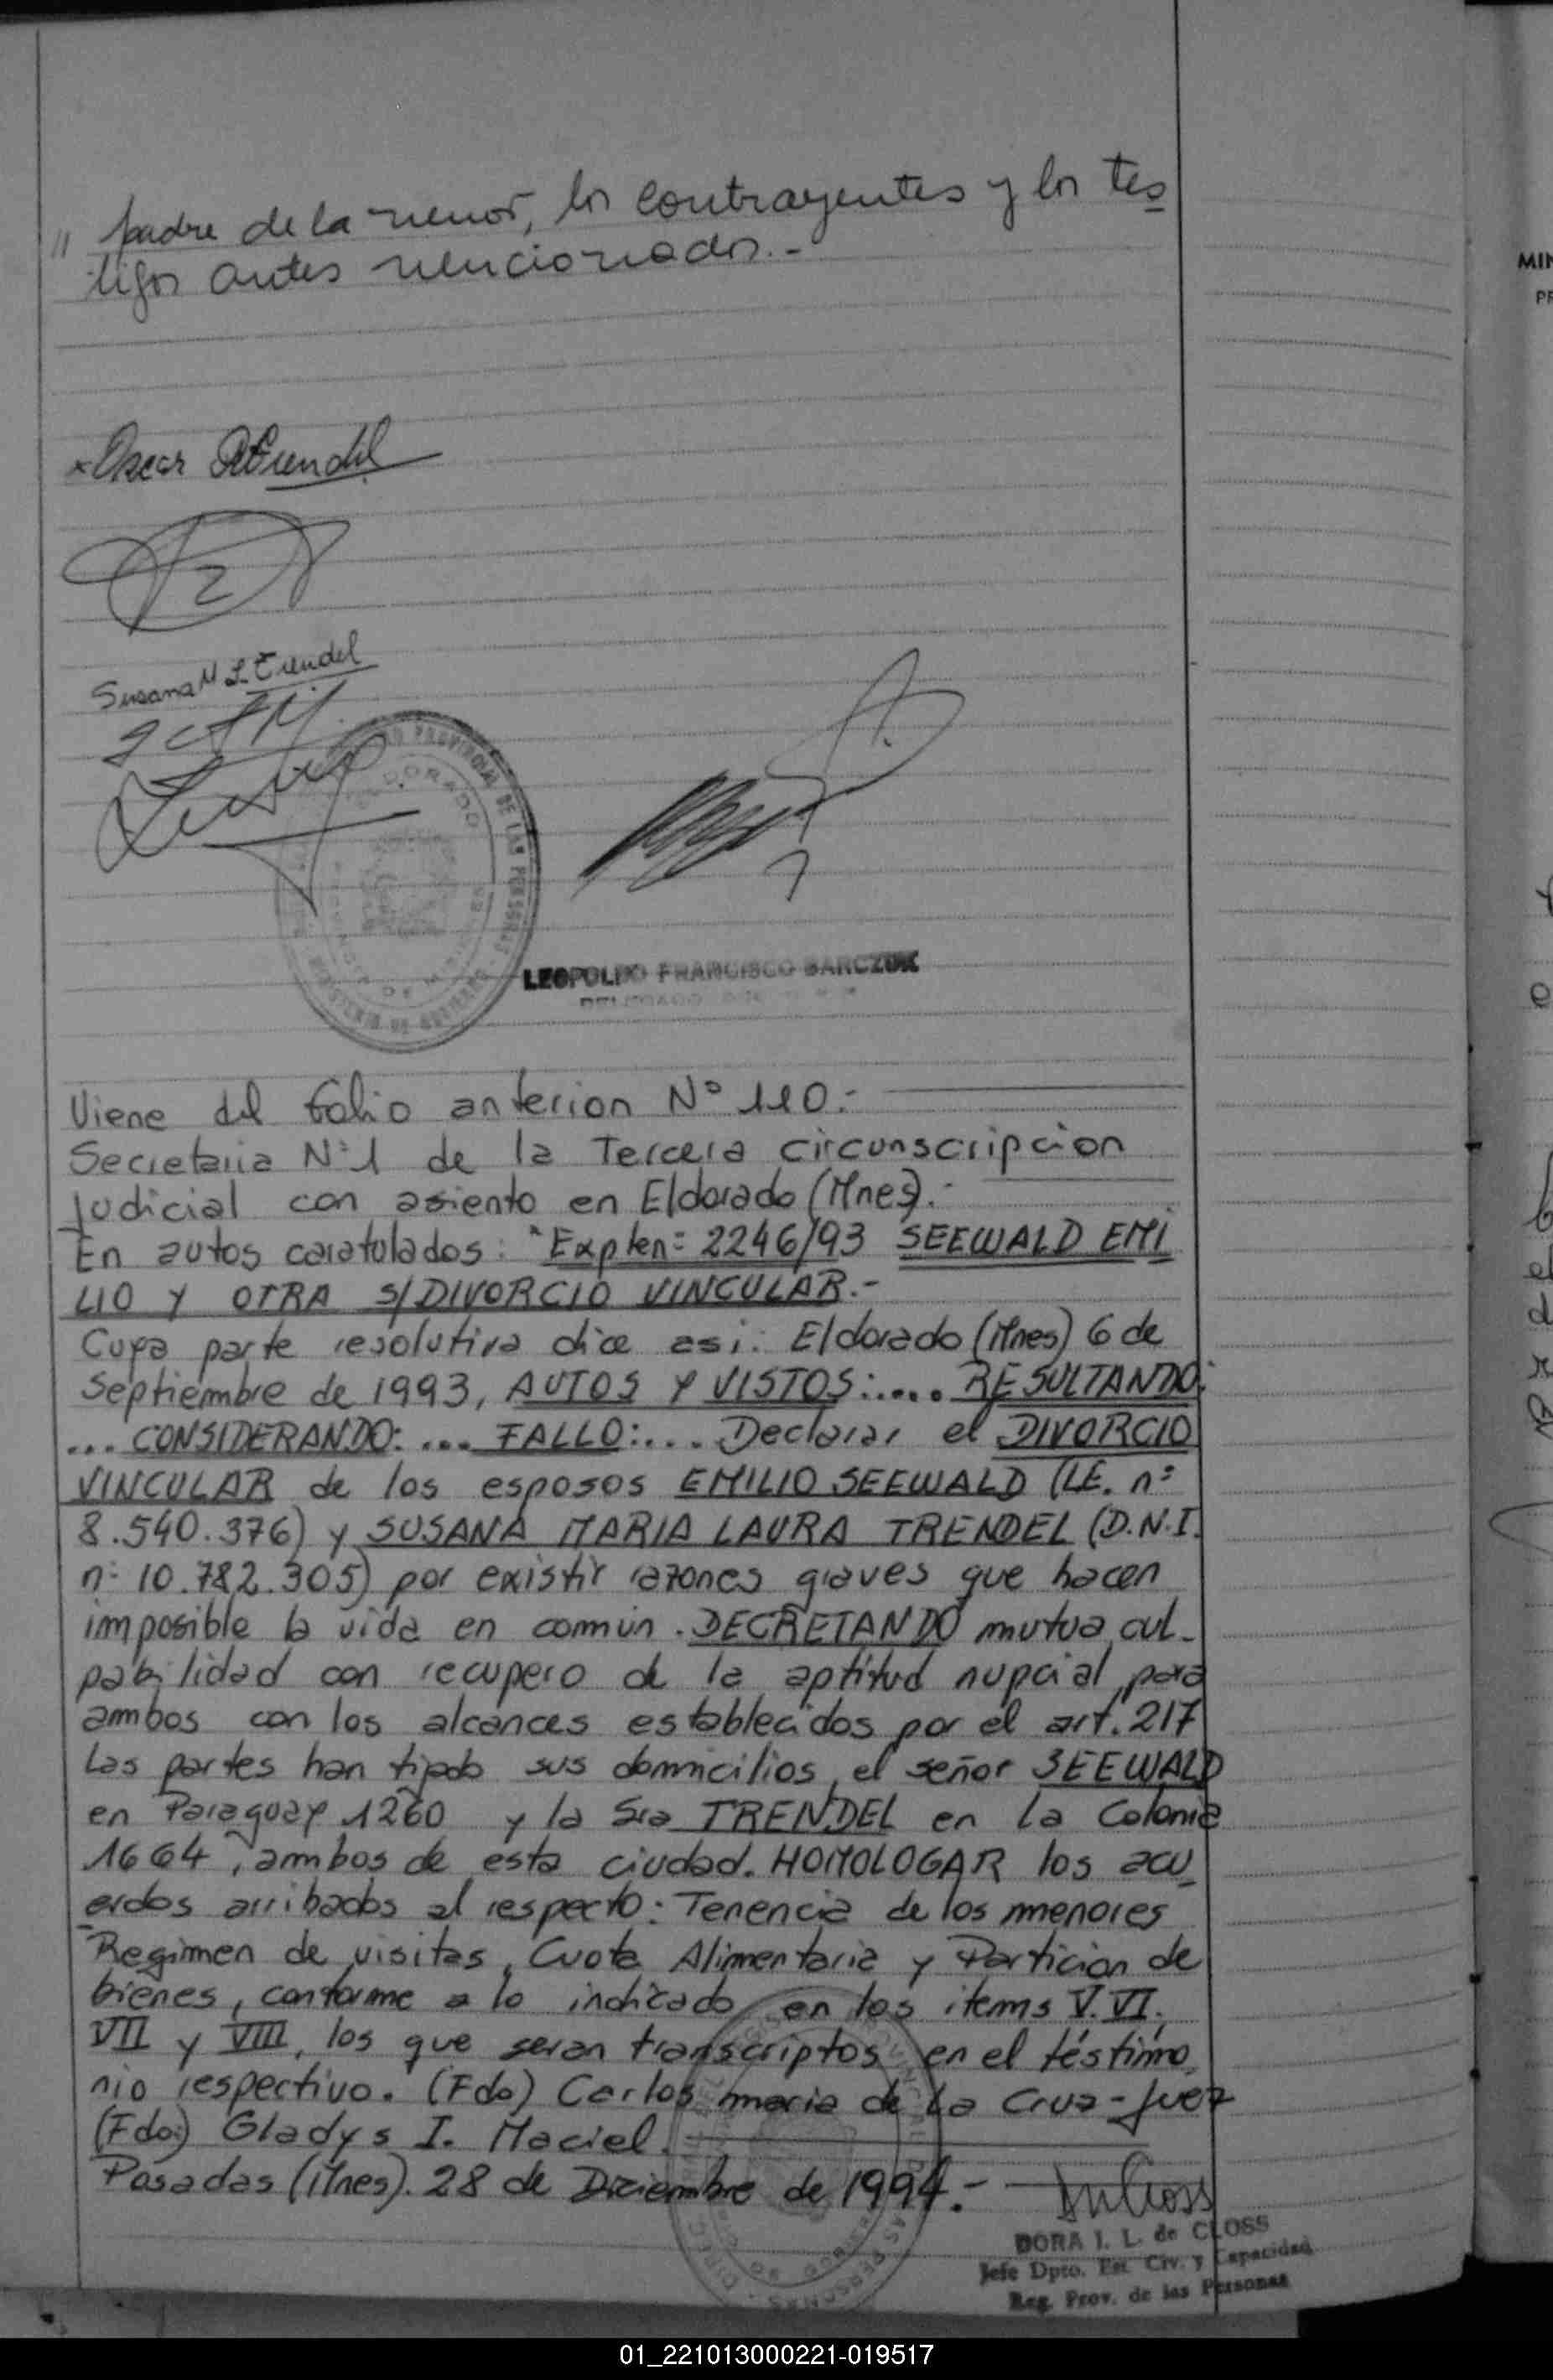 " padre de la menor, los contrayentes y los tes
tigos antes mencionados.-
x Oscar Trendel
Susana M L. Trendel
LEOPOLDO FRANCISCO BARCZUK
Viene del folio anterior N° 110.-
Secretaria N°1 de la Tercera circunscripcion
Judicial con asiento en Eldorado (Mnes).-
En autos caratulados: "Expten= 2246/93 SEEWALD EMI
LIO Y OTRA S/DIVORCIO VINCULAR.-
Cuya parte resolutiva dice asi: Eldorado (Mnes) 6 de
Septiembre de 1993, AUTOS Y VISTOS:.... RESULTANDO:
... CONSIDERANDO: ... FALLO:... Declarar el DIVORCIO
VINCULAR de los esposos EMILIO SEEWALD (LE. n°
8.540.376) y SUSANA MARIA LAURA TRENDEL (D.N.I.
n° 10.782.305) por existir razones graves que hacen
imposible la vida en común. DECRETANDO mutua cul-
pabilidad con recupero de la aptitud nupcial para
ambos con los alcances establecidos por el art. 217
Las partes han fijado sus domicilios, el señor SEEWALD
en Paraguay 1260 y la Sra TRENDEL en la Colonia
1664, ambos de esta ciudad. HOMOLOGAR los acu
erdos arribados al respecto: Tenencia de los menores
Regimen de visitas, Cuota Alimentaria y Particion de
bienes, conforme a lo indicado en los items V. VI.
VII y VIII, los que seran transcriptos en el téstimo
nio respectivo. (Fdo) Carlos maria de La Cruz-Juez
(Fdo:) Gladys I. Maciel.
Posadas (Mnes). 28 de Diciembre de 1994.-
DORA I. L. de CLOSS
Jefe Dpto. Est. Civ. y Capacidad
Reg. Prov. de las Personas
01_221013000221-019517